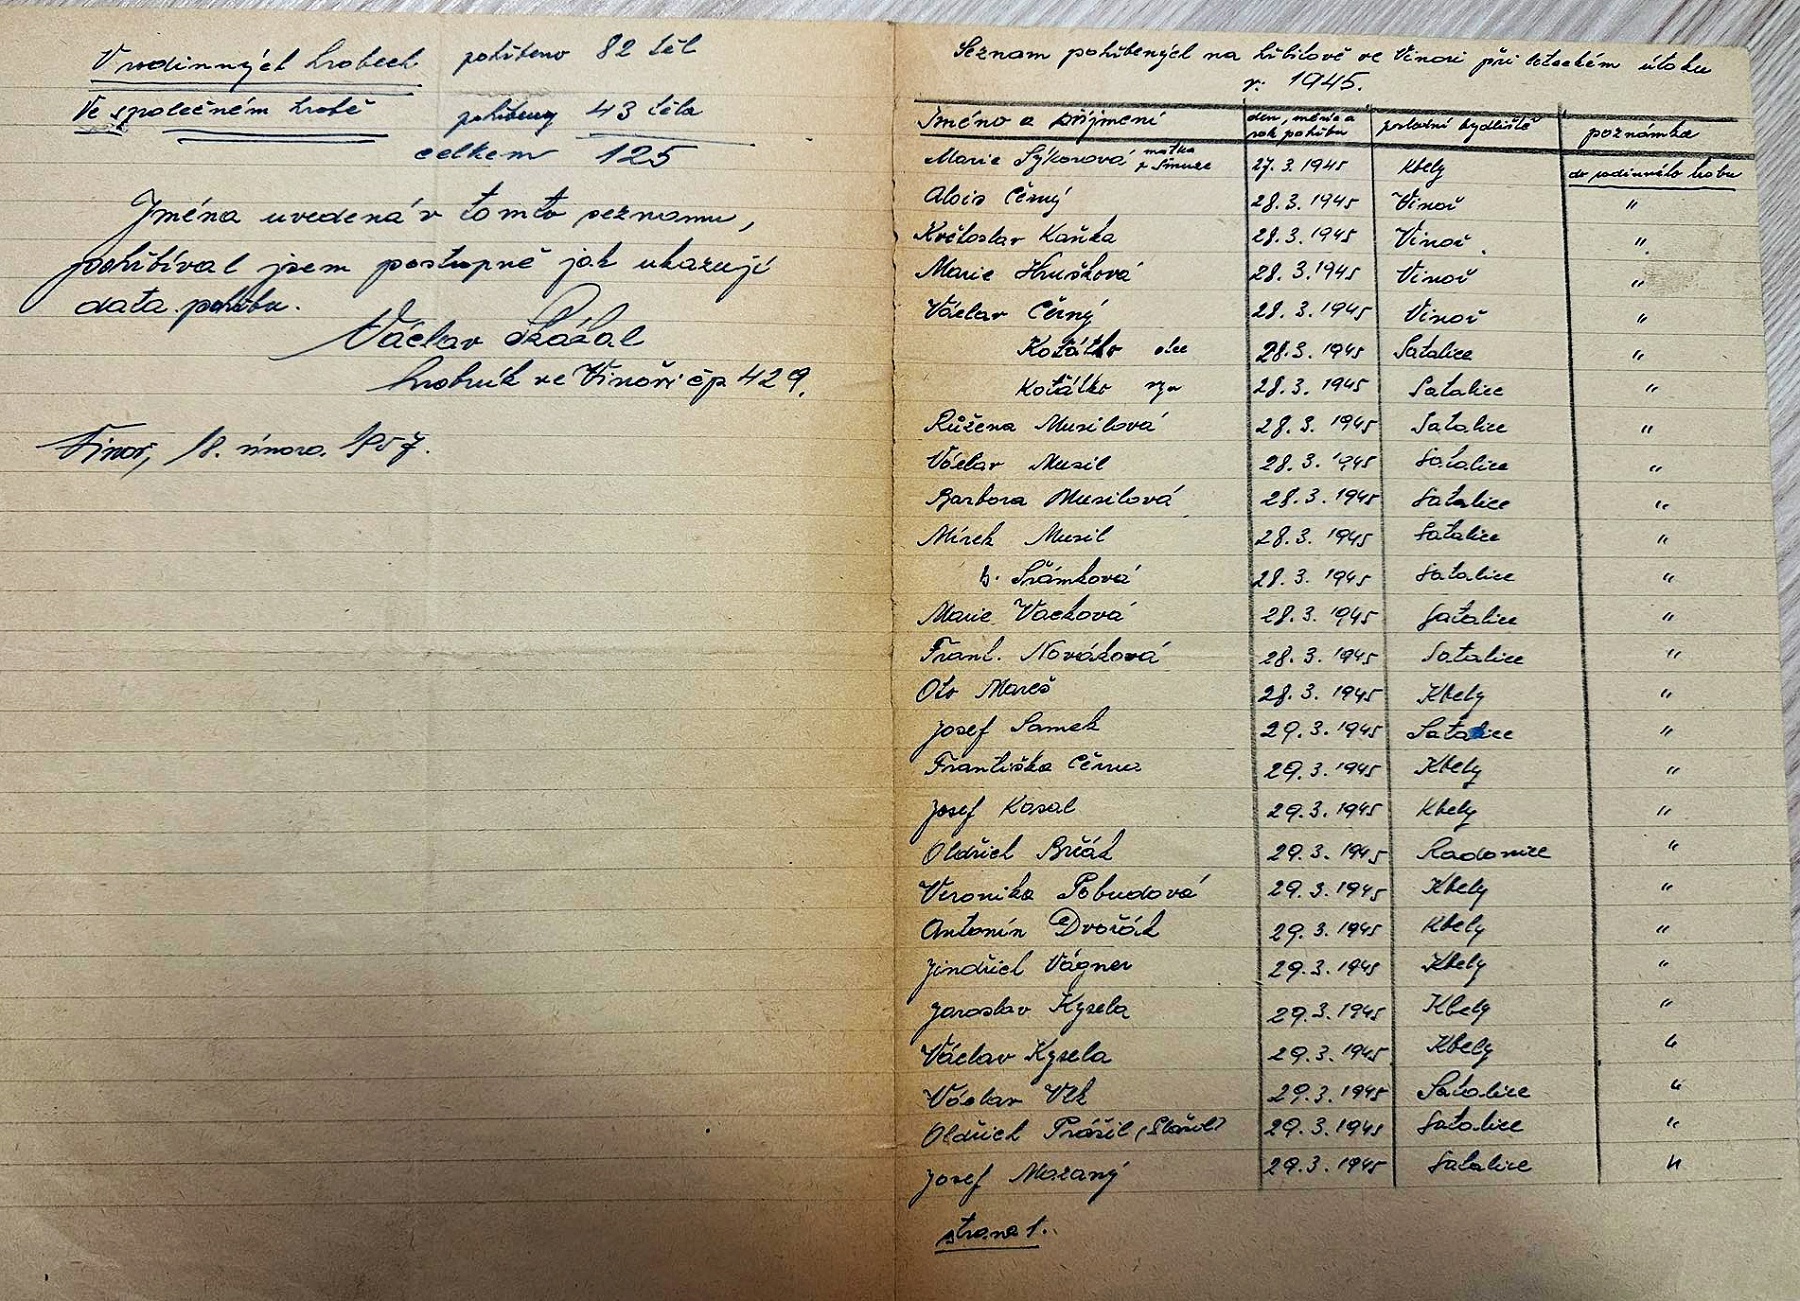 V rodinných hrobech pohřbeno 82 těl
Ve společném hrobě pohřbeny 43 těla
celkem 125
Jména uvedená v tomto seznamu,
pohřbíval jsem postupně jak ukazují
data pohřbu.
Václav
hrobník ve Vinoři čp 429.
Vinoř, 18. února. 1957.
Seznam pohřbených na hřbitově ve Vinoři při leteckém útoku
r. 1945.
Jméno a příjmení den, měsíc a rok pohřbu poslední bydliště poznámka
Marie Sýkorová matka 27.3.1945 Kbely do rodinného hrobu
Alois Černý 28.3.1945 Vinoř "
Květoslav Kaňka 28.3.1945 Vinoř "
Marie Hrušková 28.3.1945 Vinoř "
Václav Černý 28.3.1945 Vinoř "
Koťátko otec 28.3.1945 Satalice "
Koťátko syn 28.3.1945 Satalice "
Růžena Musilová 28.3.1945 Satalice "
Václav Musil 28.3.1945 Satalice "
Barbora Musilová 28.3.1945 Satalice "
Mirek Musil 28.3.1945 Satalice "
Šrámková 28.3.1945 Satalice "
Marie Vacková 28.3.1945 Satalice "
Frant. Nováková 28.3.1945 Satalice "
Oto Mareš 28.3.1945 Kbely "
Josef Samek 29.3.1945 Satalice "
Františka Černa 29.3.1945 Kbely "
Josef Kosal 29.3.1945 Kbely "
Oldřich Brčák 29.3.1945 Radonice "
Veronika Pobudová 29.3.1945 Kbely "
Antonín Dvořák 29.3.1945 Kbely "
Jindřich Vágner 29.3.1945 Kbely "
Jaroslav Kysela 29.3.1945 Kbely "
Václav Kysela 29.3.1945 Kbely "
Václav Vlk 29.3.1945 Satalice "
Oldřich Prášil 29.3.1945 Satalice "
Josef Mazaný 29.3.1945 Satalice "
strana 1.